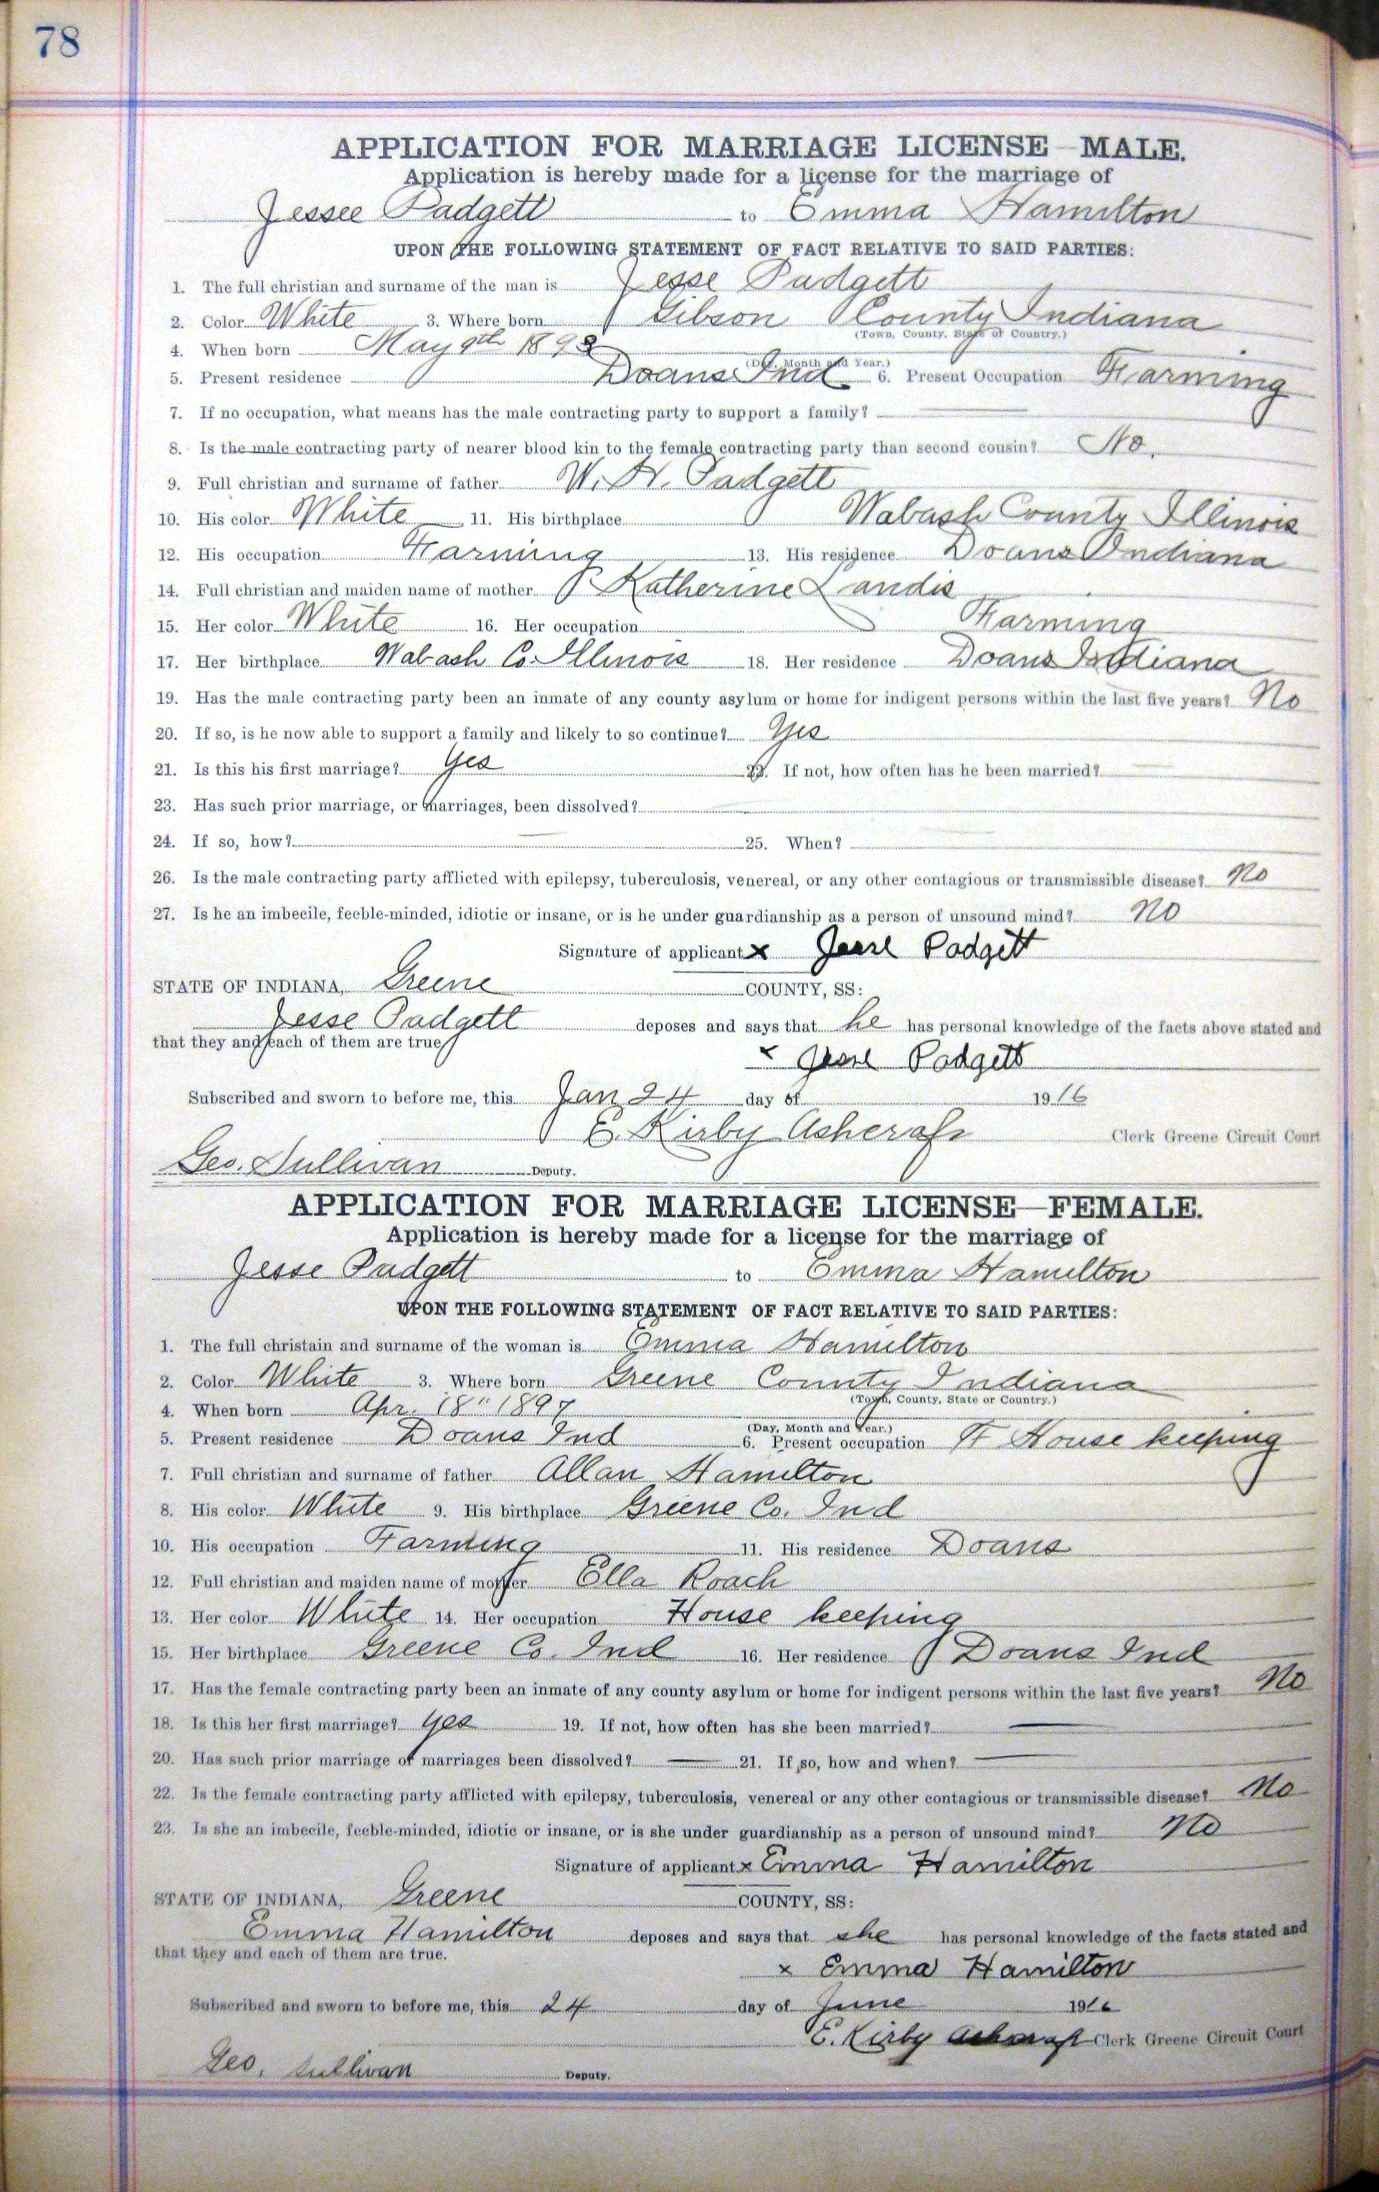 78
APPLICATION FOR MARRIAGE LICENSE—MALE.
Application is hereby made for a license for the marriage of
Jessee Padgett to Emma Hamilton
UPON THE FOLLOWING STATEMENT OF FACT RELATIVE TO SAID PARTIES:
1. The full christian and surname of the man is Jesse Padgett
2. Color White 3. Where born Gibson County Indiana
(Town, County, State or Country.)
4. When born May 9th 1893
(Day, Month and Year.)
5. Present residence Doans Ind. 6. Present Occupation Farming
7. If no occupation, what means has the male contracting party to support a family?
8. Is the male contracting party of nearer blood kin to the female contracting party than second cousin? No.
9. Full christian and surname of father W. H. Padgett
10. His color White 11. His birthplace Wabash County Illinois
12. His occupation Farming 13. His residence Doans Indiana
14. Full christian and maiden name of mother Katherine Landis
15. Her color White 16. Her occupation Farming
17. Her birthplace Wabash Co. Illinois 18. Her residence Doans Indiana
19. Has the male contracting party been an inmate of any county asylum or home for indigent persons within the last five years? No
20. If so, is he now able to support a family and likely to so continue? Yes
21. Is this his first marriage? Yes 22. If not, how often has he been married?
23. Has such prior marriage, or marriages, been dissolved?
24. If so, how? 25. When?
26. Is the male contracting party afflicted with epilepsy, tuberculosis, venereal, or any other contagious or transmissible disease? No
27. Is he an imbecile, feeble-minded, idiotic or insane, or is he under guardianship as a person of unsound mind? No
Signature of applicant x Jesse Padgett
STATE OF INDIANA, Greene COUNTY, SS:
Jesse Padgett deposes and says that he has personal knowledge of the facts above stated and
that they and each of them are true
x Jesse Padgett
Subscribed and sworn to before me, this Jan 24 day of 1916
E. Kirby Ashcraft Clerk Greene Circuit Court
Geo. Sullivan Deputy.
APPLICATION FOR MARRIAGE LICENSE—FEMALE.
Application is hereby made for a license for the marriage of
Jesse Padgett to Emma Hamilton
UPON THE FOLLOWING STATEMENT OF FACT RELATIVE TO SAID PARTIES:
1. The full christain and surname of the woman is Emma Hamilton
2. Color White 3. Where born Greene County Indiana
(Town, County, State or Country.)
4. When born Apr. 18" 1897
(Day, Month and Year.)
5. Present residence Doans Ind 6. Present occupation House keeping
7. Full christian and surname of father Allan Hamilton
8. His color White 9. His birthplace Greene Co. Ind
10. His occupation Farming 11. His residence Doans
12. Full christian and maiden name of mother Ella Roach
13. Her color White 14. Her occupation House keeping
15. Her birthplace Greene Co. Ind 16. Her residence Doans Ind
17. Has the female contracting party been an inmate of any county asylum or home for indigent persons within the last five years? No
18. Is this her first marriage? Yes 19. If not, how often has she been married?
20. Has such prior marriage or marriages been dissolved? 21. If so, how and when?
22. Is the female contracting party afflicted with epilepsy, tuberculosis, venereal or any other contagious or transmissible disease? No
23. Is she an imbecile, feeble-minded, idiotic or insane, or is she under guardianship as a person of unsound mind? No
Signature of applicant x Emma Hamilton
STATE OF INDIANA, Greene COUNTY, SS:
Emma Hamilton deposes and says that she has personal knowledge of the facts stated and
that they and each of them are true.
x Emma Hamilton
Subscribed and sworn to before me, this 24 day of June 1916
E. Kirby Ashcraft Clerk Greene Circuit Court
Geo. Sullivan Deputy.